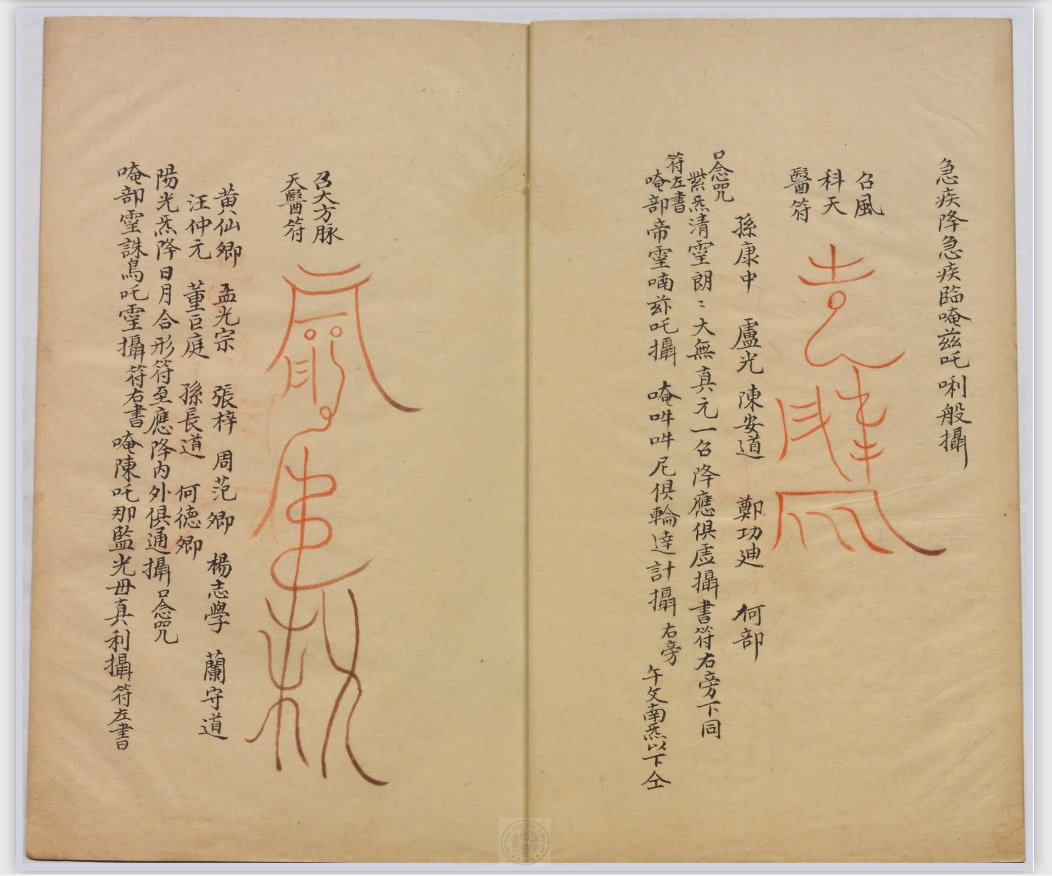 急疾降急疾臨唵茲吒唎般攝
召風
科天
醫符
孫康中 盧光 陳安道 鄭功廸 何部
口念咒
紫炁清霐朗〻大無真元一召降應俱虛攝書符右旁下同
符左書
唵部帝霐喃茲吒攝 唵吽吽尼俱輪達計攝右旁
午文南炁以下仝
召大方脉
天醫符
黃仙卿 孟光宗 張梓 周范卿 楊志學 蘭守道
汪仲元 董巨庭 孫長道 何德卿
陽光炁降日月合形符至應降內外俱通攝口念咒
唵部霐誅鳥吒霐攝符右書唵陳吒那監光毋真利攝符左書